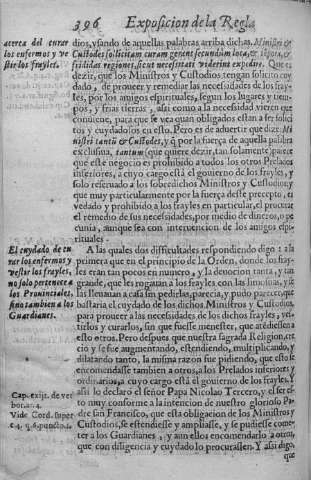 396 Exposicion de la Regla
acerca del curar
los enfermos y ve
stir los frayles.
dios, vsando de aquellas palabras arriba dichas. Ministri &
Custodes sollicitam curam gerent secundum loca, & tempora, &
frigidas regiones, sicut necessitati viderint expedire. Que es
dezir, que los Ministros y Custodios tengan solicito cuy
dado, de proueer y remediar las necesidades de los fray-
les, por los amigos espirituales, segun los lugares y tiem-
pos, y frias tierras, assi como a la necesidad vieren que
conuiene, para que se vea quan obligados estan a ser solici
tos y cuydadosos en esto. Pero es de aduertir que dize: Mi
nistri tantũ & Custodes, y q̃ por la fuerça de aquella palabra
exclusiua, tantum (que quiere dezir, tan solamente) parece
que este negocio es prohibido a todos los otros Prelados
inferiores, a cuyo cargo està el gouierno de los frayles, y
solo reseruado a los sobredichos Ministros y Custodios; y
que muy particularmente por la fuerça deste precepto, es
vedado y prohibido a los frayles en particular, el procurar
el remedio de sus necesidades, por medio de dineros, o pe
cunia, aunque sea con interuencion de los amigos espi-
rituales.
El cuydado de cu
rar los enfermos y
vestir los frayles,
no solo pertenece a
los Prouinciales,
sino tambien a los
Guardianes.
A las quales dos difficultades respondiendo digo: a la
primera que en el principio de la Orden, donde los fray-
les eran tan pocos en numero, y la deuocion tanta, y tan
grande, que les rogauan a los frayles con las limosnas, y se
las lleuauan a casa sin pedirlas, parecia, y pudo parecer que
bastaria el cuydado de los dichos Ministros y Custodios,
para proueer a las necesidades de los dichos frayles, ves-
tirlos y curarlos, sin que fuesse menester, que atẽdiessen a
esto otros. Pero despues que nuestra sagrada Religion cre
ciò y se fue augmentando, estendiendo, multiplicando, y
dilatando tanto, la misma razon fue pidiendo, que esto se
encomendasse tambien a otros, a los Prelados inferiores y
ordinarios, a cuyo cargo està el gouierno de los frayles. Y
Cap. exijt. de ver
bor.
Vide Cord. super
c. 4. q. 6. puncto.
assi lo declarò el señor Papa Nicolao Tercero, y el ser es-
to muy conforme a la intencion de nuestro glorioso Pa-
dre san Francisco, que esta obligacion de los Ministros y
Custodios, se estendiesse y ampliasse, y se pudiesse come-
ter a los Guardianes, y aun ellos encomendarlo a otros,
que con diligencia y cuydado lo procurassen. Y assi digo,
que